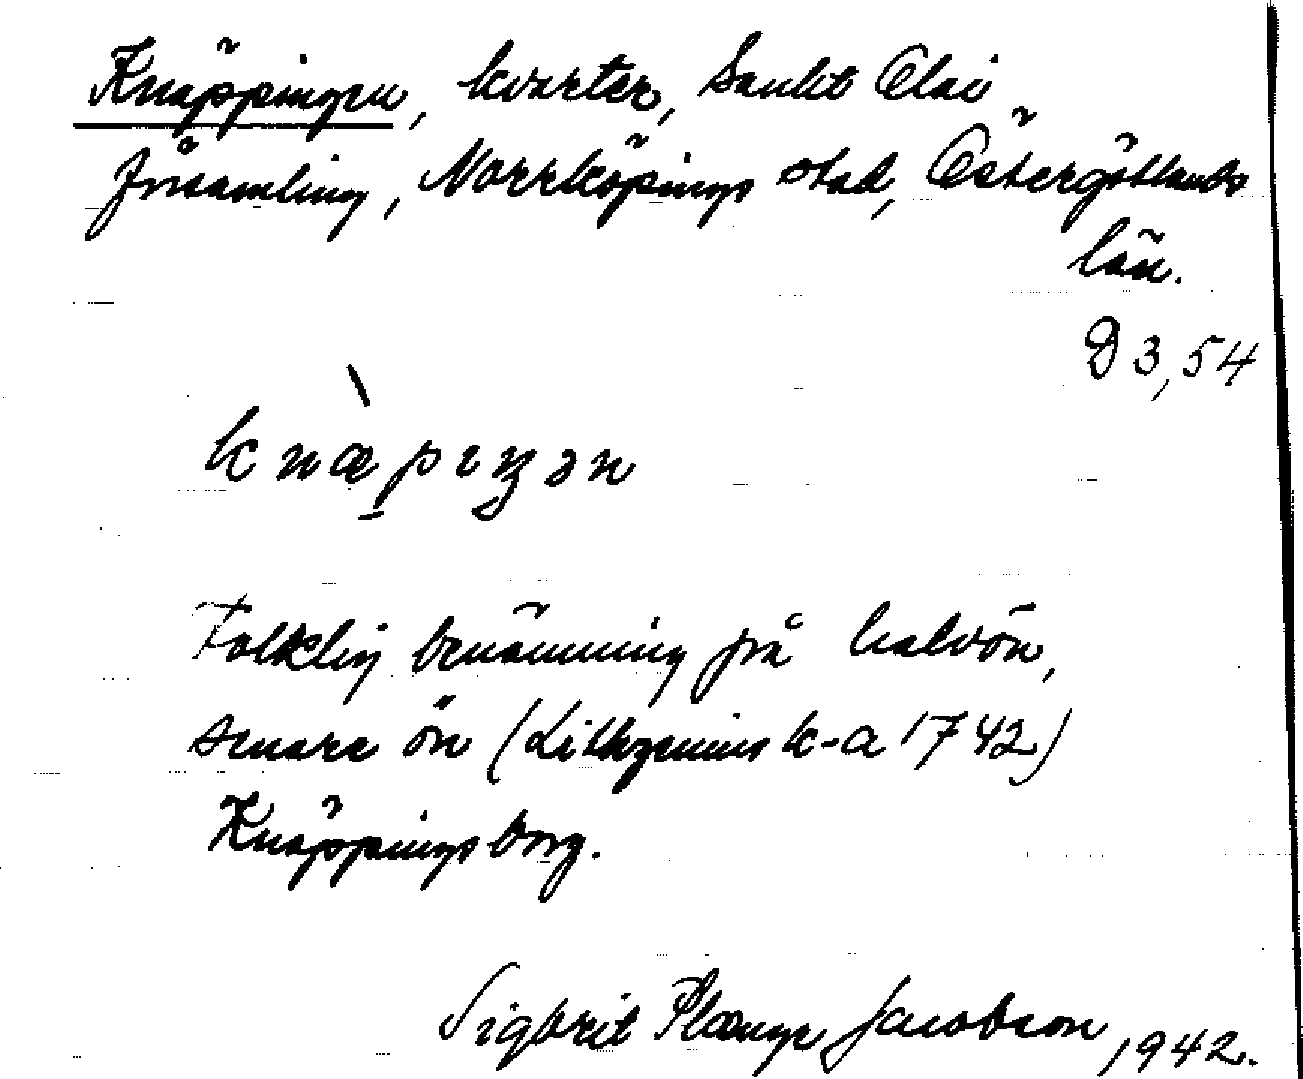 Knäppingen, kvarter, Sankt Olai
församling, Norrköpings stad, Östergötlands
län.
D 3,54
knæ̀pıŋən
Folklig benämning på halvön,
senare ön (Lithzenius k-a 1742)
Knäppingsborg.
Sigbrit Plænge Jacobson, 1942.